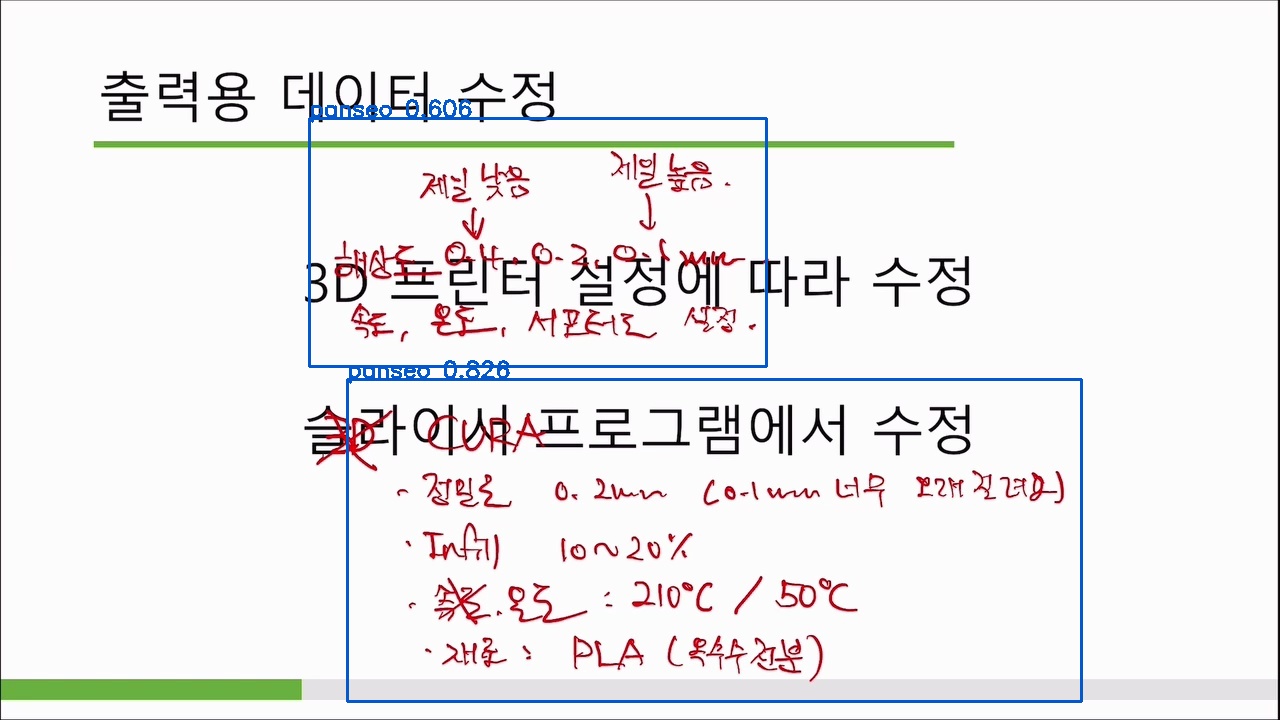 출력용 데이터 수정
panseo 0.606
제일 낮음 제일 높음.
↓ ↓
해상도 0.4, 0.2, 0.1mm
3D 프린터 설정에 따라 수정
속도, 온도, 서포터도 설정.
panseo 0.826
슬라이서 프로그램에서 수정
3D CURA
· 정밀도 0.2mm (0.1mm 너무 오래 걸려요)
· Infill 10~20%
· 속도, 온도 : 210℃ / 50℃
· 재료 : PLA (옥수수전분)